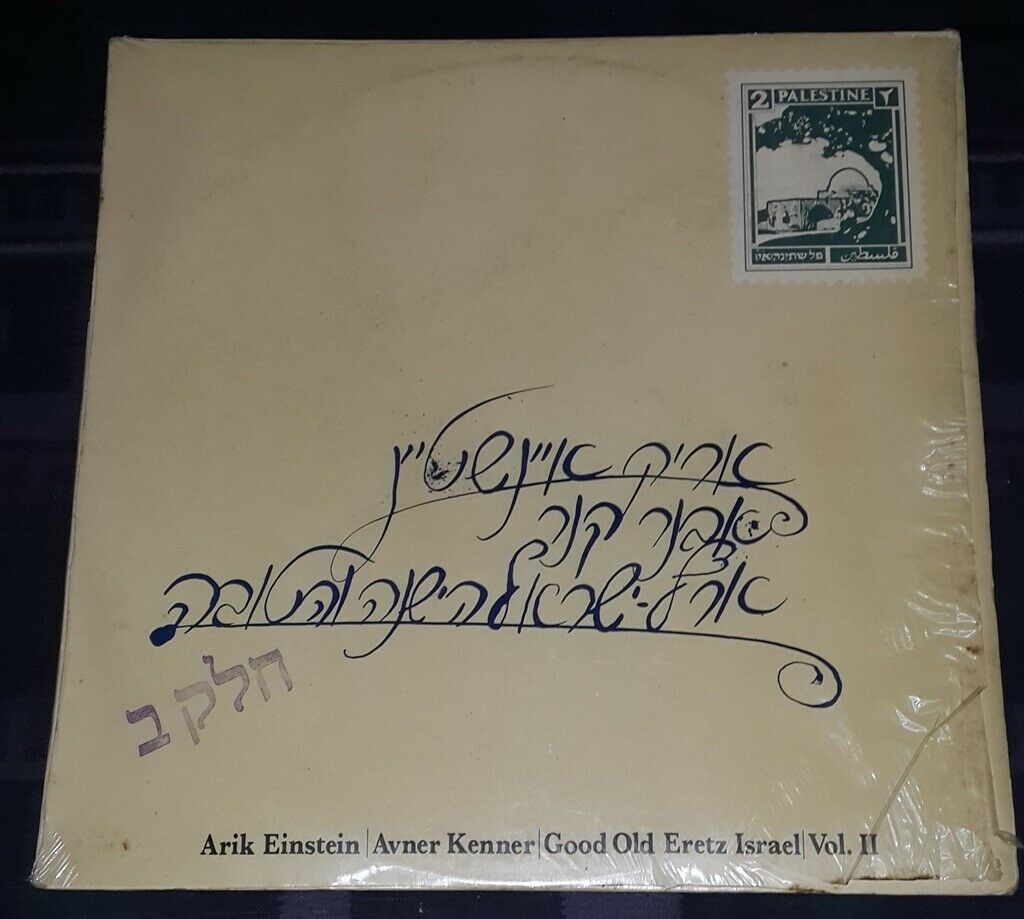 2 PALESTINE ٢
פלשתינה א״י فلسطين
אריק איינשטיין
אבנר קנר
ארץ-ישראל הישנה והטובה
חלק ב
Arik Einstein | Avner Kenner | Good Old Eretz Israel | Vol. II